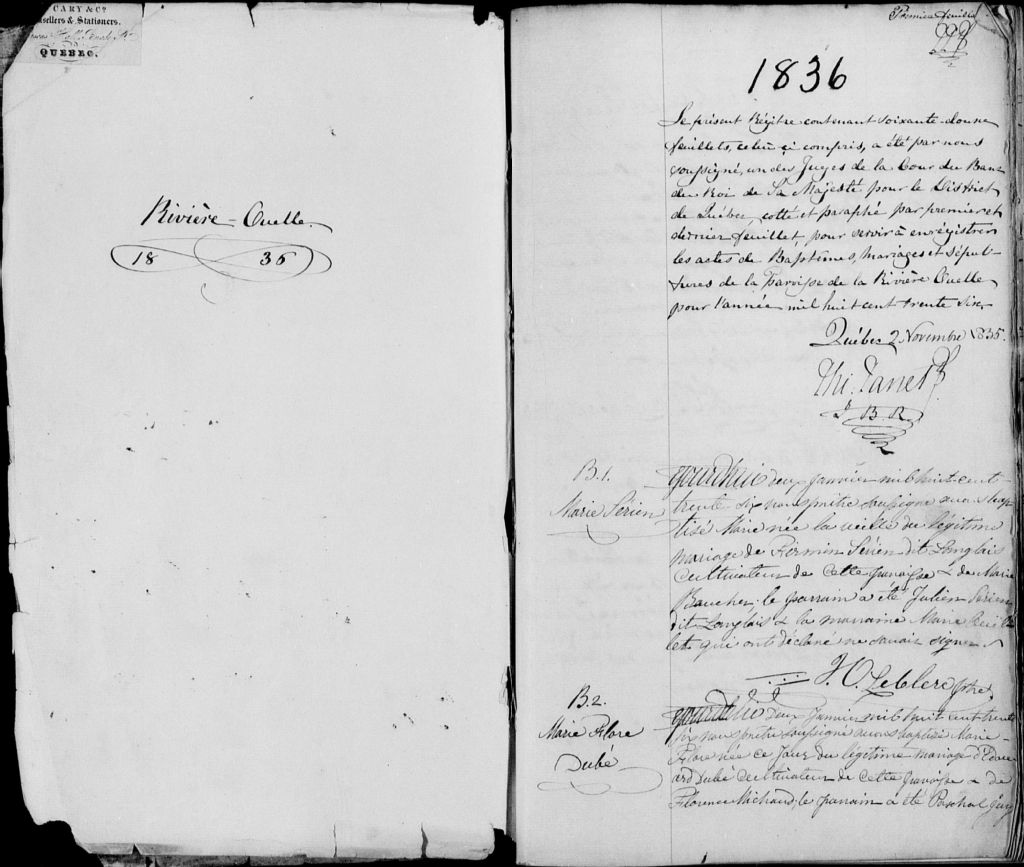 CARY & Co.
sellers & Stationers,
QUEBEC.
Rivière-Ouelle.
18 36
Premier feuillet
1836
Le présent Régitre contenant soixante-douze
feuillets, celui ci compris, a été par nous
soussigné, un des Juges de la Cour du Banc
du Roi de Sa Majesté pour le District
de Québec, cotté et paraphé par premier et
dernier feuillet, pour servir à enregistrer
les actes de Baptêmes, Mariages et Sépul-
tures de la Paroisse de la Rivière Ouelle
pour l'année mil huit cent trente six.
Québec 2 Novembre 1835.
Thi. Panet
J. B. R.
B. 1.
Marie Sérien
deux Janvier mil huit cent
trente-six nous prêtre soussigné avons bap
tisé Marie née la veille du légitime
mariage de Firmin Sérien dit Langlais
Cultivateur de cette paroisse & de Marie
Boucher, le parrain a été Julien Serien
dit Langlais & la marraine Marie
qui ont déclaré ne savoir signer
J. O. Leclerc Ptre
B. 2.
Marie Flore
Dubé
deux Janvier mil huit cent trente
six nous prêtre soussigné avons baptisé Marie
Flore née ce jour du légitime mariage d'Edou
ard Dubé Cultivateur de cette paroisse & de
Florence Michaud, le parrain a été Paschal